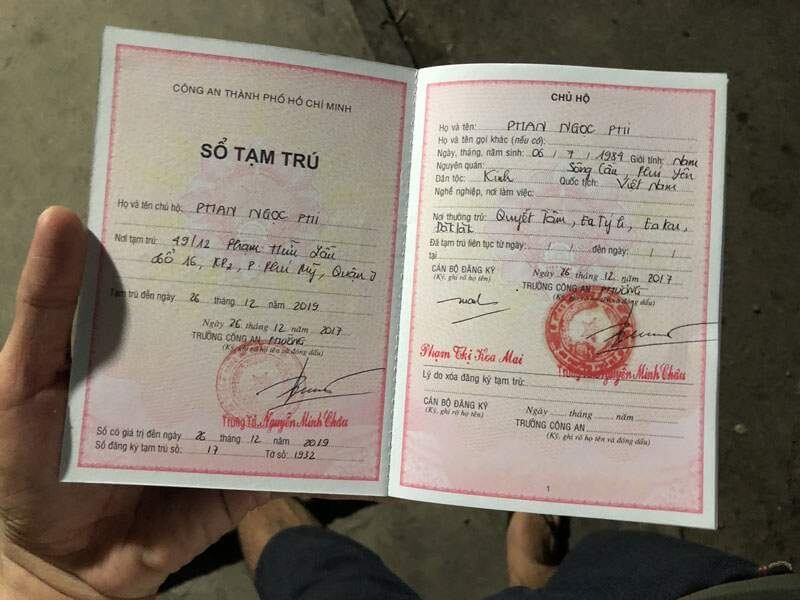 CÔNG AN THÀNH PHỐ HỒ CHÍ MINH
SỔ TẠM TRÚ
Họ và tên chủ hộ: PHAN NGỌC PHI
Nơi tạm trú: 49/12 Phạm Hữu Lầu
Tổ 16, KP2, P. Phú Mỹ, Quận 7
Tạm trú đến ngày 26 tháng 12 năm 2019
Ngày 26 tháng 12 năm 2017
TRƯỞNG CÔNG AN PHƯỜNG
(Ký, ghi rõ họ tên và đóng dấu)
Trung Tá Nguyễn Minh Châu
Sổ có giá trị đến ngày 26 tháng 12 năm 2019
Sổ đăng ký tạm trú số: 17 Tờ số: 1932
CHỦ HỘ
Họ và tên: PHAN NGỌC PHI
Họ và tên gọi khác (nếu có):
Ngày, tháng, năm sinh: 06 / 7 / 1984 Giới tính: Nam
Nguyên quán: Sông Cầu, Phú Yên
Dân tộc: Kinh Quốc tịch: Việt Nam
Nghề nghiệp, nơi làm việc:
Nơi thường trú: Quyết Tâm, Ea Tý h, Ea Kar,
Đắk Lắk
Đã tạm trú liên tục từ ngày: / / đến ngày: / /
tại
Ngày 26 tháng 12 năm 2017
CÁN BỘ ĐĂNG KÝ
(Ký, ghi rõ họ tên)
TRƯỞNG CÔNG AN PHƯỜNG
(Ký, ghi rõ họ tên và đóng dấu)
Phạm Thị Hoa Mai
Trung Tá Nguyễn Minh Châu
Lý do xóa đăng ký tạm trú:
Ngày ..... tháng ..... năm .....
CÁN BỘ ĐĂNG KÝ
(Ký, ghi rõ họ tên)
TRƯỞNG CÔNG AN
(Ký, ghi rõ họ tên và đóng dấu)
1